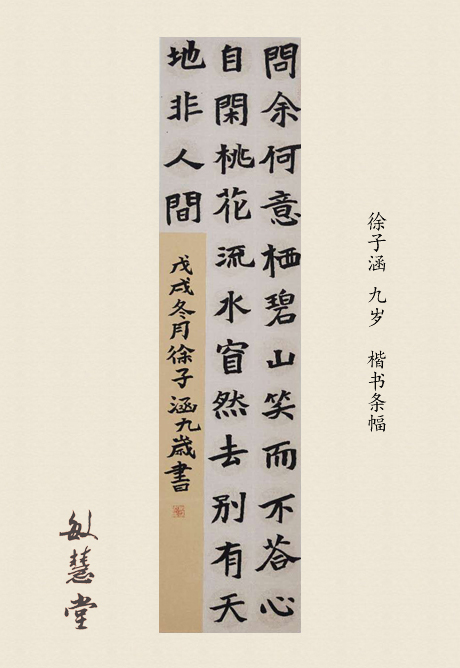 徐子涵 九岁 楷书条幅
問余何意栖碧山笑而不荅心
自閑桃花流水窅然去別有天
地非人間
戊戌冬月徐子涵九歲書
敏慧堂